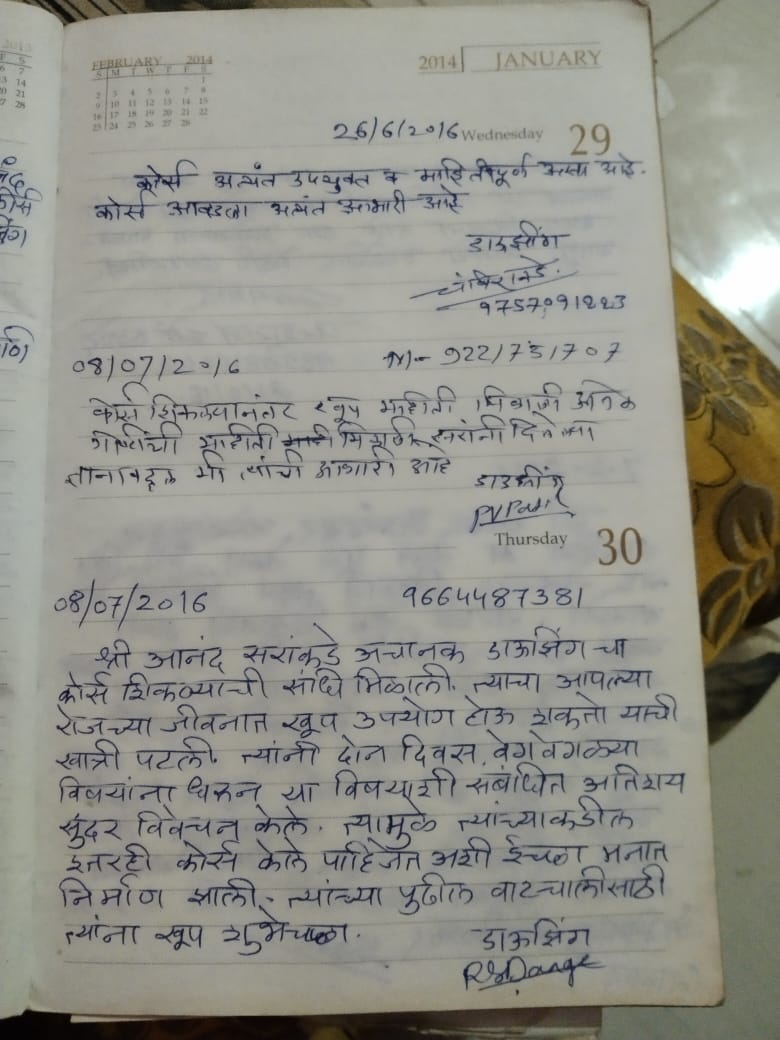 FEBRUARY 2014
S M T W T F S
1
2 3 4 5 6 7 8
9 10 11 12 13 14 15
16 17 18 19 20 21 22
23 24 25 26 27 28
2014 JANUARY
26/6/2016 Wednesday 29
कोर्स अत्यंत उपयुक्त व माहितीपूर्ण असा आहे.
कोर्स आवडला अत्यंत आभारी आहे
डाऊझींग
9757091223
08/07/2016 M- 9221731707
कोर्स शिकल्यानंतर खूप माहीती मिळाली अनेक
गोष्टींची माहीती मिळाली सरांनी दिलेल्या
ज्ञानाबद्दल मी त्यांची आभारी आहे
डाउझींग
Thursday 30
08/07/2016 9664487381
श्री आनंद सरांकडे अचानक डाऊझिंग चा
कोर्स शिकण्याची संधि मिळाली. त्याचा आपल्या
रोजच्या जीवनात खूप उपयोग होऊ शकतो याची
खात्री पटली. त्यांनी दोन दिवस वेगवेगळ्या
विषयांना धरुन या विषयाशी संबंधित अतिशय
सुंदर विवेचन केले. त्यामुळे त्यांच्याकडील
इतरही कोर्स केले पाहिजेत अशी ईच्छा मनात
निर्माण झाली. त्यांच्या पुढील वाटचालीसाठी
त्यांना खूप शुभेच्छा.
डाऊझिंग
RSDange